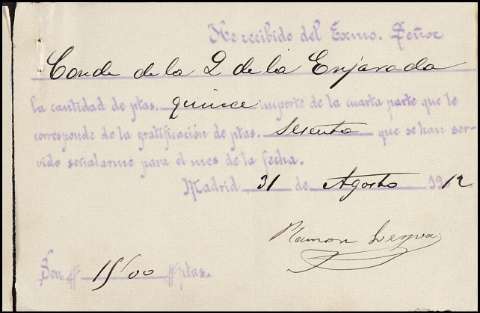 He recibido del Exmo. Señor
Conde de la Q de la Enjarada
la cantidad de ptas. quince importe de la cuarta parte que le
corresponde de la gratificación de ptas. Sesenta que se han ser-
vido señalarme para el mes de la fecha.
Madrid, 31 de Agosto 1912
Ramon
Son # 15'00 # ptas.